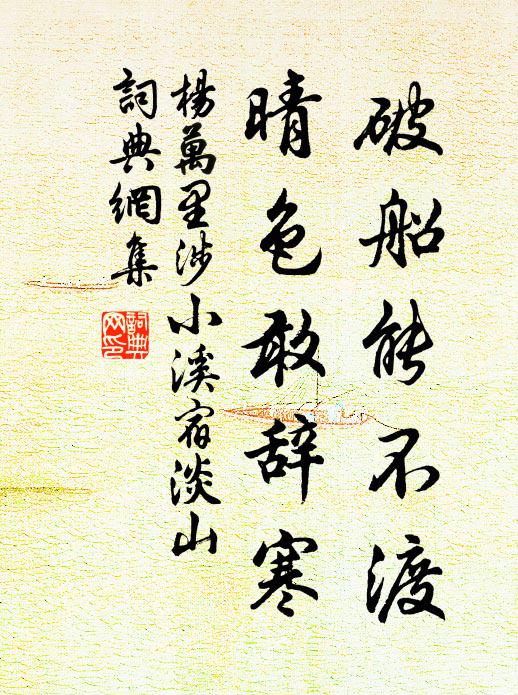 破船能不渡
晴色敢辞寒
楊萬里涉小溪宿淡山
詞典網集
詞典
网印